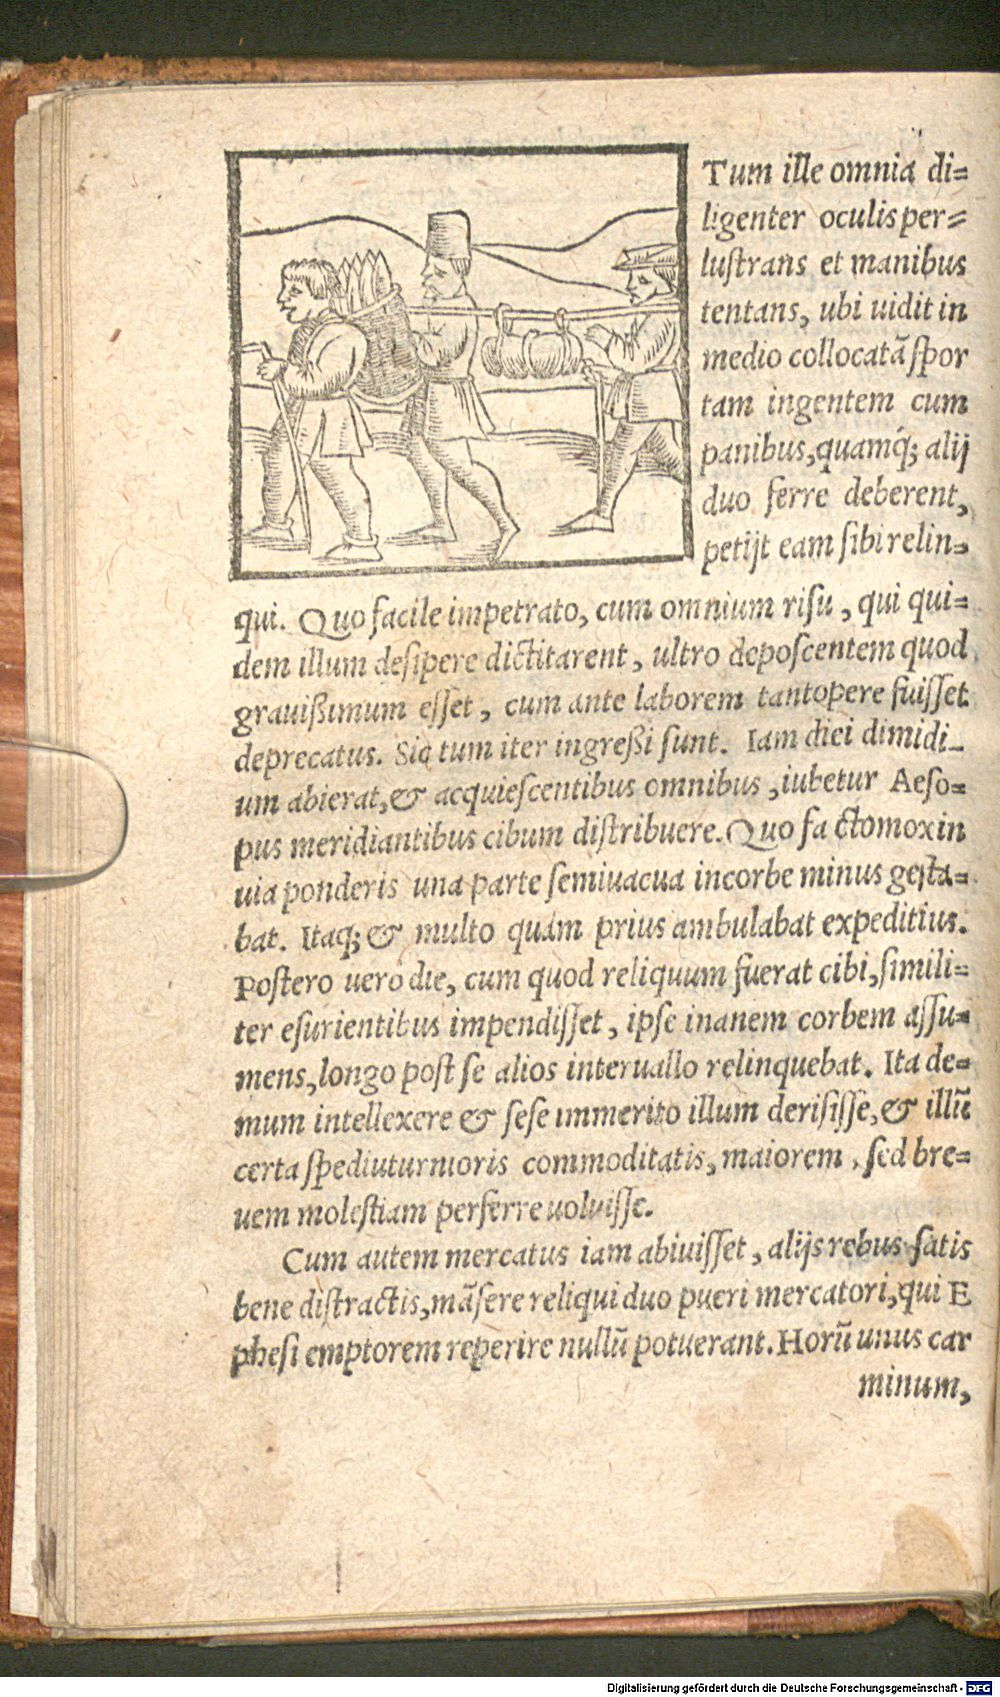 Tum ille omnia di=
ligenter oculis per=
luſtrans et manibus
tentans, ubi uidit in
medio collocatã ſpor
tam ingentem cum
panibus, quamq́; alij
duo ferre deberent,
petijt eam ſibi relin=
qui. Quo facile impetrato, cum omnium riſu, qui qui=
dem illum deſipere dictitarent, ultro depoſcentem quod
grauißimum eſſet, cum ante laborem tantopere fuiſſet
deprecatus. Sic tum iter ingreßi ſunt. Iam diei dimidi=
um abierat, & acquieſcentibus omnibus, iubetur Aeſo=
pus meridiantibus cibum diſtribuere. Quo facto mox in
uia ponderis una parte ſemiuacua in corbe minus geſta=
bat. Itaq; & multo quàm prius ambulabat expeditius.
Poſtero uero die, cum quod reliquum fuerat cibi, ſimili=
ter eſurientibus impendiſſet, ipſe inanem corbem aſſu=
mens, longo poſt ſe alios interuallo relinquebat. Ita de=
mum intellexere & ſeſe immerito illum deriſiſſe, & illũ
certa ſpe diuturnioris commoditatis, maiorem, ſed bre=
uem moleſtiam perferre uoluiſſe.
Cum autem mercatus iam abiuiſſet, alijs rebus ſatis
bene diſtractis, mãſere reliqui duo pueri mercatori, qui E
pheſi emptorem reperire nullũ potuerant. Horũ unus car
minum,
Digitalisierung gefördert durch die Deutsche Forschungsgemeinschaft - DFG